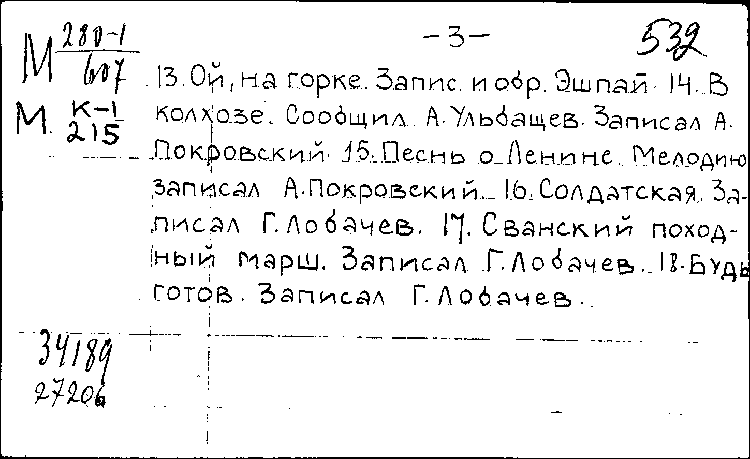 М 280-1
607
М К-1
215
-3-
532
13. Ой, на горке. Запис. и обр. Эшпай. 14. В
колхозе. Сообщил А. Ульбащев. Записал А.
Покровский. 15. Песнь о Ленине. Мелодию
записал А. Покровский. 16. Солдатская. За-
писал Г. Лобачев. 17. Сванский поход-
ный марш. Записал Г. Лобачев. 18. Будь
готов. Записал Г. Лобачев.
34189
27206